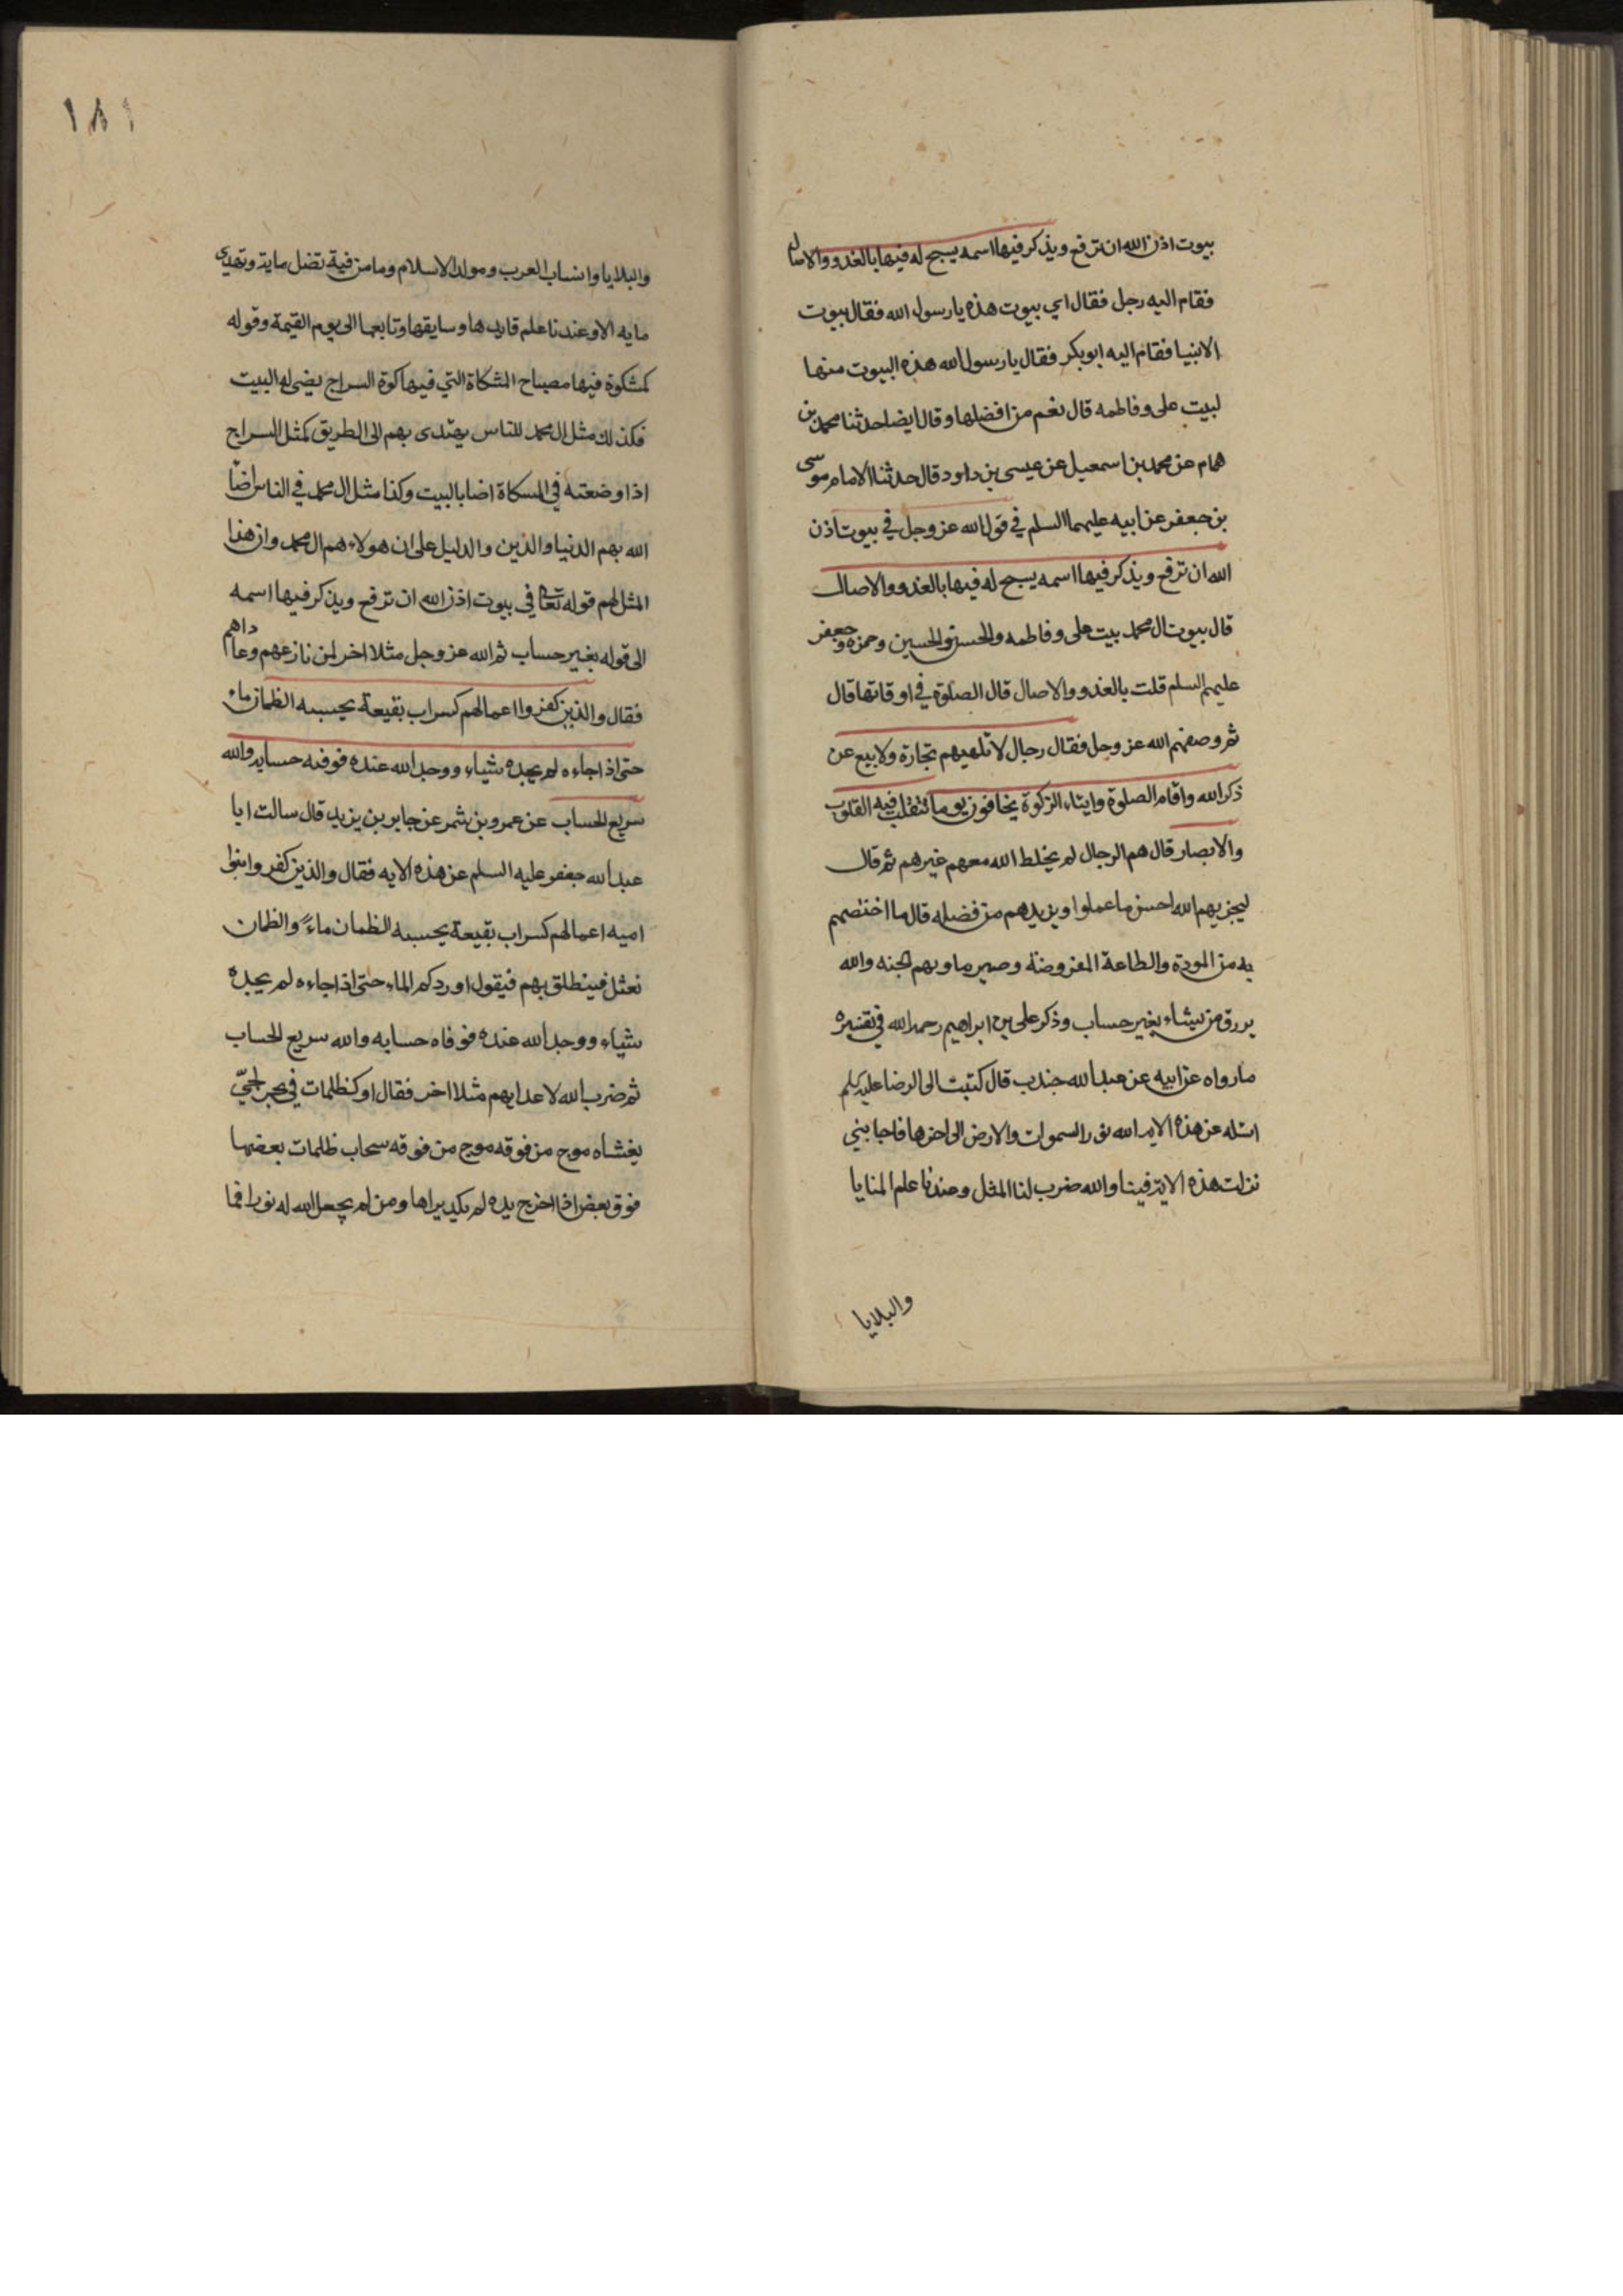 بيوت اذن الله ان ترفع ويذكر فيها اسمه يسبح له فيها بالغدو والاصال
فقام اليه رجل فقال اي بيوت هذه يا رسول الله فقال بيوت
الانبيا فقام اليه ابوبكر فقال يا رسول الله هذه البيوت منها
لبيت علی وفاطمه قال نعم من افضلها وقال ايضا حدثنا محمد بن
همام عن محمد بن اسمعيل عن عيسى بن داود قال حدثنا الامام موسى
بن جعفر عن ابيه عليهما السلم في قول الله عز وجل في بيوت اذن
الله ان ترفع ويذكر فيها اسمه يسبح له فيها بالغدو والاصال
قال بيوت ال محمد بيت علی وفاطمه والحسن والحسين وحمزه وجعفر
عليهم السلم قلت بالغدو والاصال قال الصلوة في اوقاتها قال
ثم وصفهم الله عز وجل فقال رجال لا تلهيهم تجارة ولا بيع عن
ذكر الله واقام الصلوة وايتاء الزكوة يخافون يوما تتقلب فيه القلوب
والابصار قال هم الرجال لم يخلط الله معهم غيرهم ثم قال
ليجزيهم الله احسن ما عملوا ويزيدهم من فضله قال ما اختصهم
به من المودة والطاعة المفروضة وصير ماويهم الجنه والله
يرزق من يشاء بغير حساب وذكر علی بن ابراهيم رحمه الله في تفسيره
مارواه عن ابيه عن عبد الله جندب قال كتبت الى الرضا عليه السلم
اسئله عن هذه الايه الله نور السموات والارض الى اخرها فاجابني
نزلت هذه الاية فينا والله ضرب لنا المثل وعندنا علم المنايا
والبلايا
١٨١
والبلايا وانساب العرب ومولد الاسلام وما من فية تضل ماية وتهدى
مايه الا وعندنا علم قايدها وسايقها وتابعها الى يوم القيمة وقوله
كمشكوة فيها مصباح المشكاة التي فيها كوة السراج يضى له البيت
فكذلك مثل ال محمد للناس يهتدى بهم الى الطريق كمثل السراج
اذا وضعته في المسكاة اضا بالبيت وكذا مثل ال محمد في الناس اضا
الله بهم الدنيا والدين والدليل على ان هولاء هم ال محمد وان هذا
المثل لهم قوله تعالى في بيوت اذن الله ان ترفع ويذكر فيها اسمه
الى قوله بغير حساب ثم الله عز وجل مثلا اخر لمن نازعهم وعاداهم
فقال والذين كفروا اعمالهم كسراب بقيعة يحسبه الظمان ماء
حتى اذا جاءه لم يجده شياء ووجد الله عنده فوفيه حسابه والله
سريع الحساب عن عمرو بن شمر عن جابر بن يزيد قال سالت ابا
عبد الله جعفر عليه السلم عن هذه الايه فقال والذين كفروا بنوا
اميه اعمالهم كسراب بقيعة يحسبه الظمان ماءً والظمان
نعثل فينطلق بهم فيقول اوردكم الماء حتى اذا جاءه لم يجده
شياء ووجد الله عنده فوفاه حسابه والله سريع الحساب
ثم ضرب الله لاعدايهم مثلا اخر فقال او كظلمات في بحر لجيّ
يغشاه موج من فوقه موج من فوقه سحاب ظلمات بعضها
فوق بعض اذا اخرج يده لم يكد يراها ومن لم يجعل الله له نورا فما